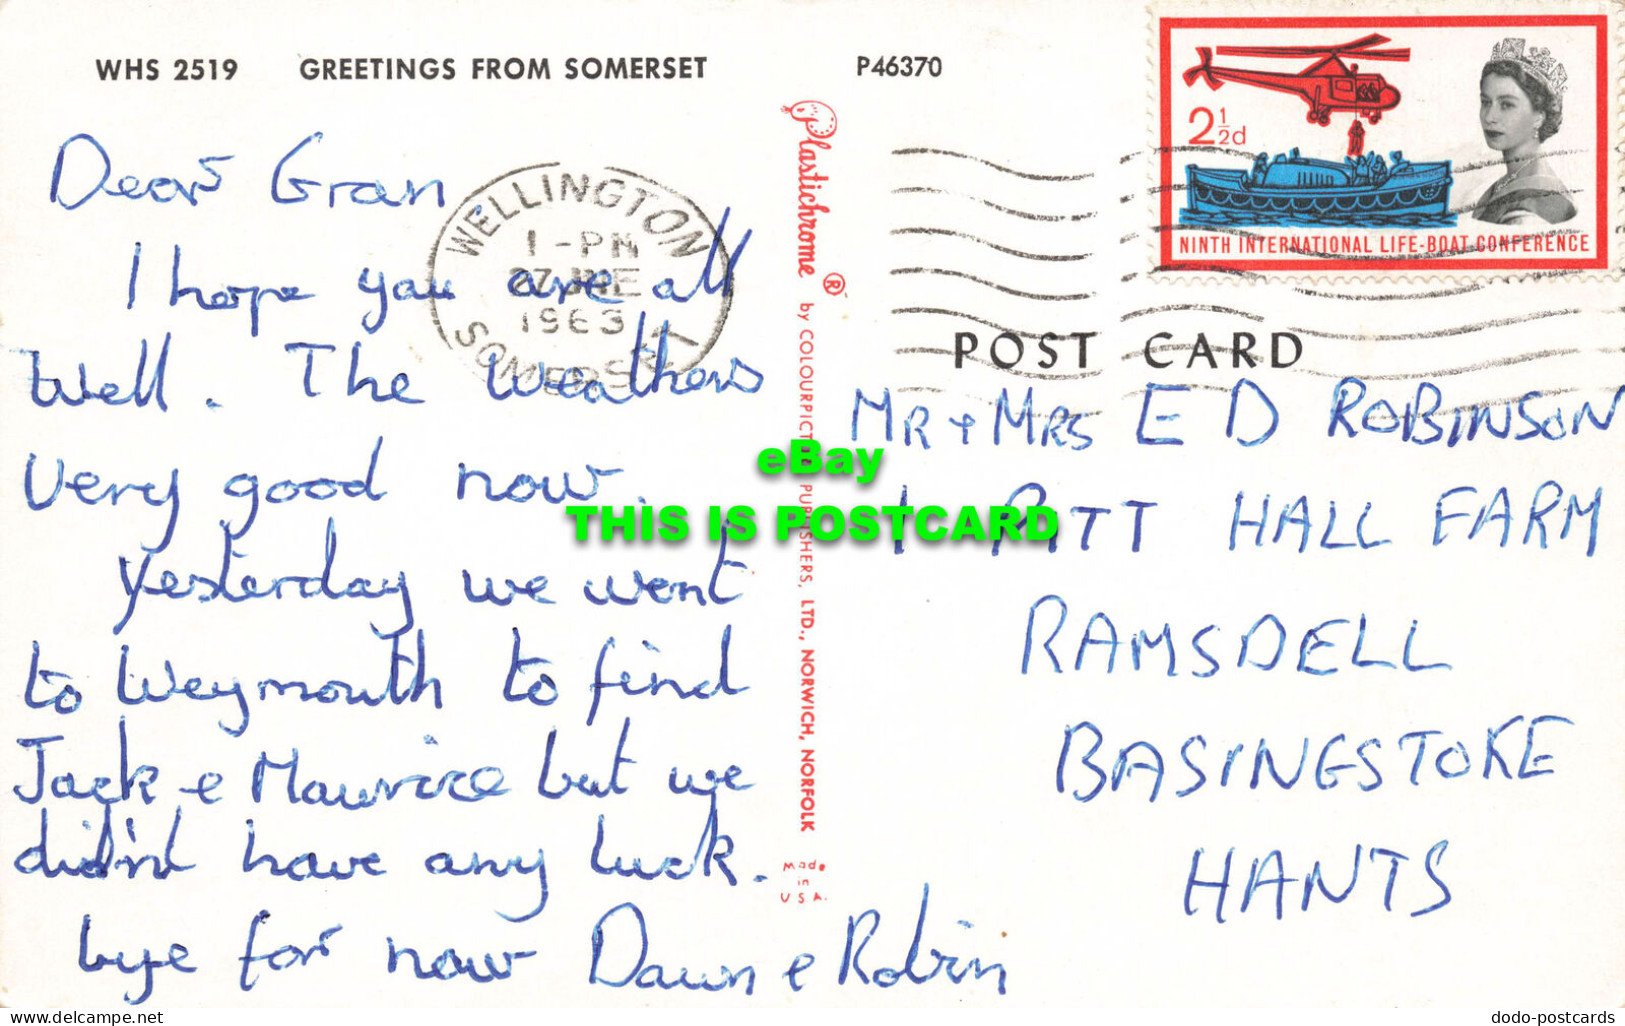 WHS 2519 GREETINGS FROM SOMERSET P46370
Dear Gran
I hope you are all
Well. The weathers
very good now.
Yesterday we went
to Weymouth to find
Jack & Maurice but we
did'nt have any luck.
bye for now Dawn & Robin
WELLINGTON
1-PM
27 JNE
1963
SOMERSET
Plastichrome ® by COLOURPICTURE PUBLISHERS, LTD., NORWICH, NORFOLK
Made
in
U S A.
2½d
NINTH INTERNATIONAL LIFE-BOAT CONFERENCE
POST CARD
MR + MRS E D ROBINSON
1 PITT HALL FARM
RAMSDELL
BASINGSTOKE
HANTS
eBay
THIS IS POSTCARD
delcampe.net
dodo-postcards